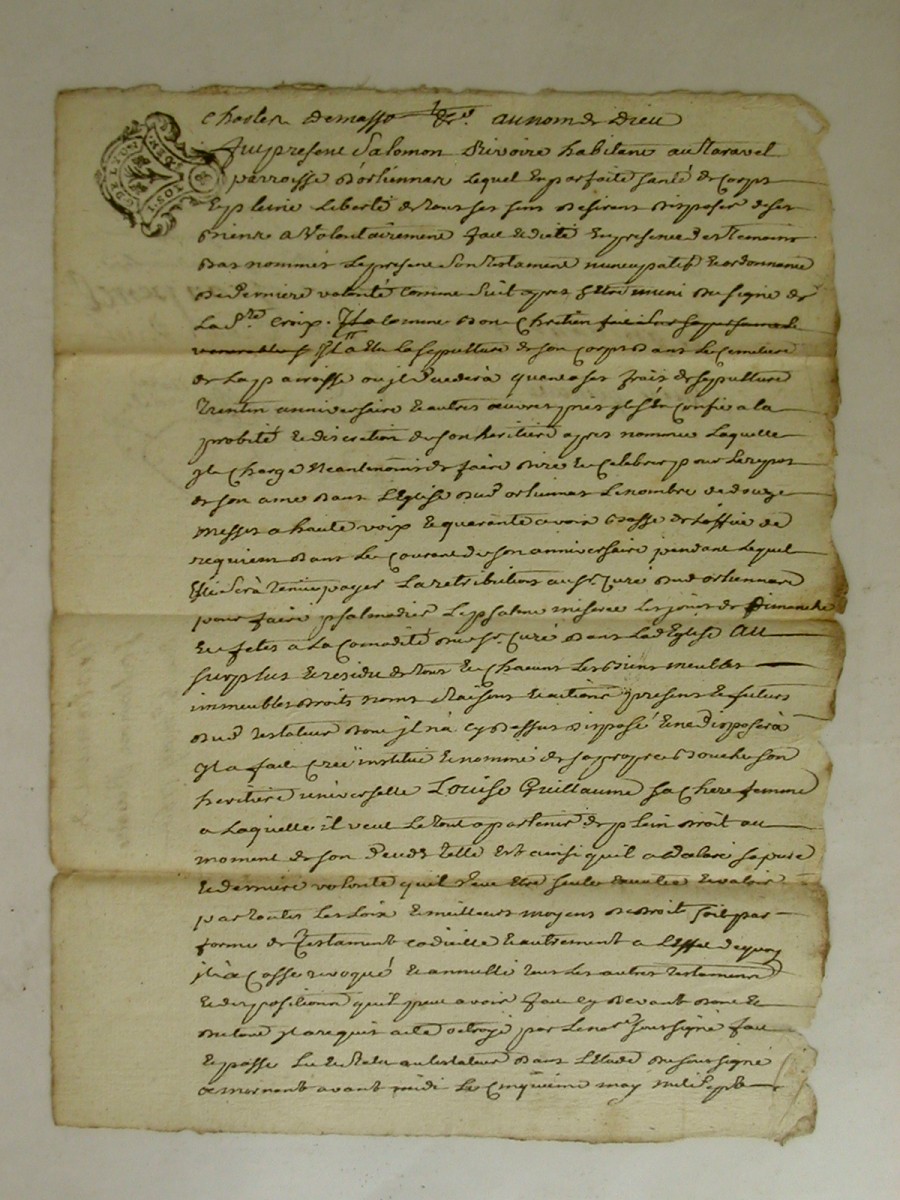 Charles Demasso au nom de Dieu
Fut present Salomon Rivoire habitant au Taravel
parroisse d'orliennas Lequel En parfaite santé de Corps
En pleine Liberté de tous ses sens Desirant disposer de ses
Biens a Volontairement fait Et dicté En presence des temoins
Bas nommés Le present Son testament nuncupatif Et ordonnance
De Derniere volonté Comme Suit apres S'etre muni du signe de
La Ste Croix. Comme Bon Chretien
Il a Elu La sepulture de son Corps dans Le Cemetiere
de La parroisse ou jl decedera quant a ses frais de sepulture
trentin anniversaire Et autres œuvres pies jl s'En Confie a la
probité Et discretion de son heritiere apres nommée Laquelle
jl Charge Neantmoins de faire dire Et Celebrer pour Le repos
de son ame dans L'Eglise dud orliennas Le nombre de douze
messes a haute voix Et quarante a voix Basse de L'office de
requiem dans Le Courant de son anniversaire pendant Lequel
Elle sera tenue payer La retribution au Sr Curé dud orliennas
pour faire psalmodier Le psalme miserere Les jours de Dimanche
Et fetes a La Comodité du Sr Curé dans Lad Eglise Au
surplus Et residu de tous Et Chacuns Les Biens meubles
immeubles droits noms Raisons Et actions presents Et futurs
Dud Testateur dont jl n'a Cy Dessus disposé Et ne disposera
jl a fait Créé institué Et nommé de sa propre Bouche son
heritiere universelle Louise Guillaume sa Chere femme
a Laquelle il veut Le tout apartenir de plein droit au
moment de son deceds telle Est ainsi quil a declaré sa pure
Et derniere volonté quil veut Etre seule Executée Et valoir
par toutes Les Loix Et meilleurs moyens de droit soit par
forme de Testament Codicille Et autrement a L'Effet de quoy
jl a Cassé revoqué Et annullé tous Les autres testaments
Et dispositions quil peut avoir fait Cy Devant dont Et
du tout jl a requis acte octroyé par Le notre soussigné fait
Et passé Lu Et Relu au testateur dans L'Etude du soussigné
a mornant avant midi Le Cinquieme may mil sept